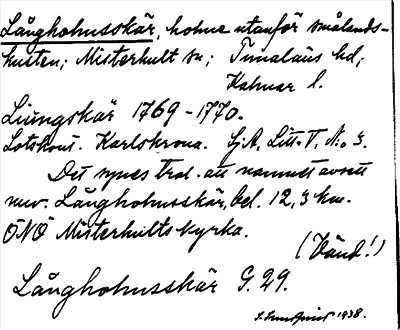 Långholmsskär, holme utanför smålands-
kusten; Misterhult sn; Tunaläns hd;
Kalmar l.
Ljungskär 1769-1770.
Lotskont. Karlskrona. Sj.A. Litt. V, N:o 3.
Det synes trol. att namnet avsett
nuv. Långholmsskär, bel. 12,3 km.
ÖNÖ Misterhults kyrka.
(Vänd!)
Långholmsskär G. 29.
Lundquist 1938.